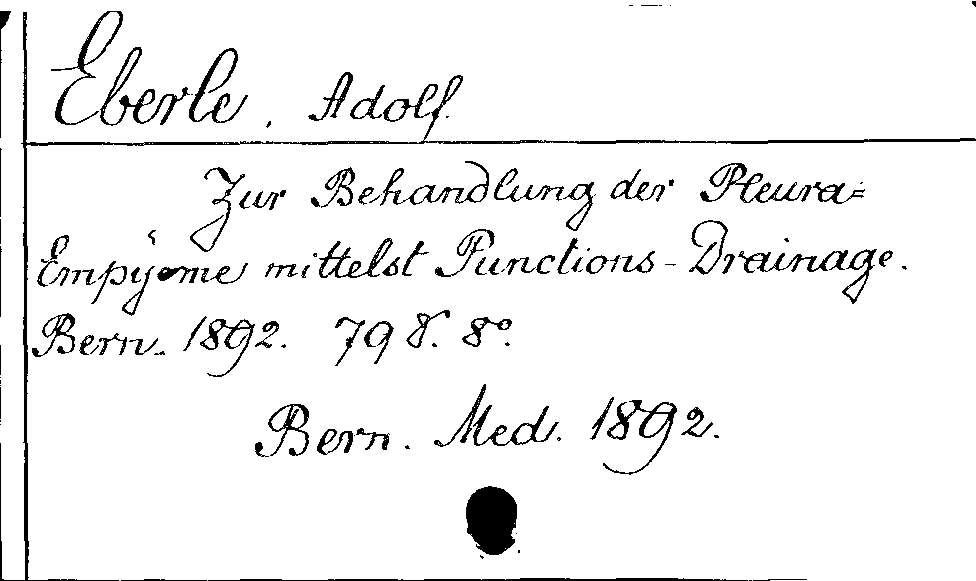 Eberle, Adolf.
Zur Behandlung der Pleura=
Empyeme mittelst Punctions-Drainage.
Bern. 1892. 79 S. 8°.
Bern. Med. 1892.